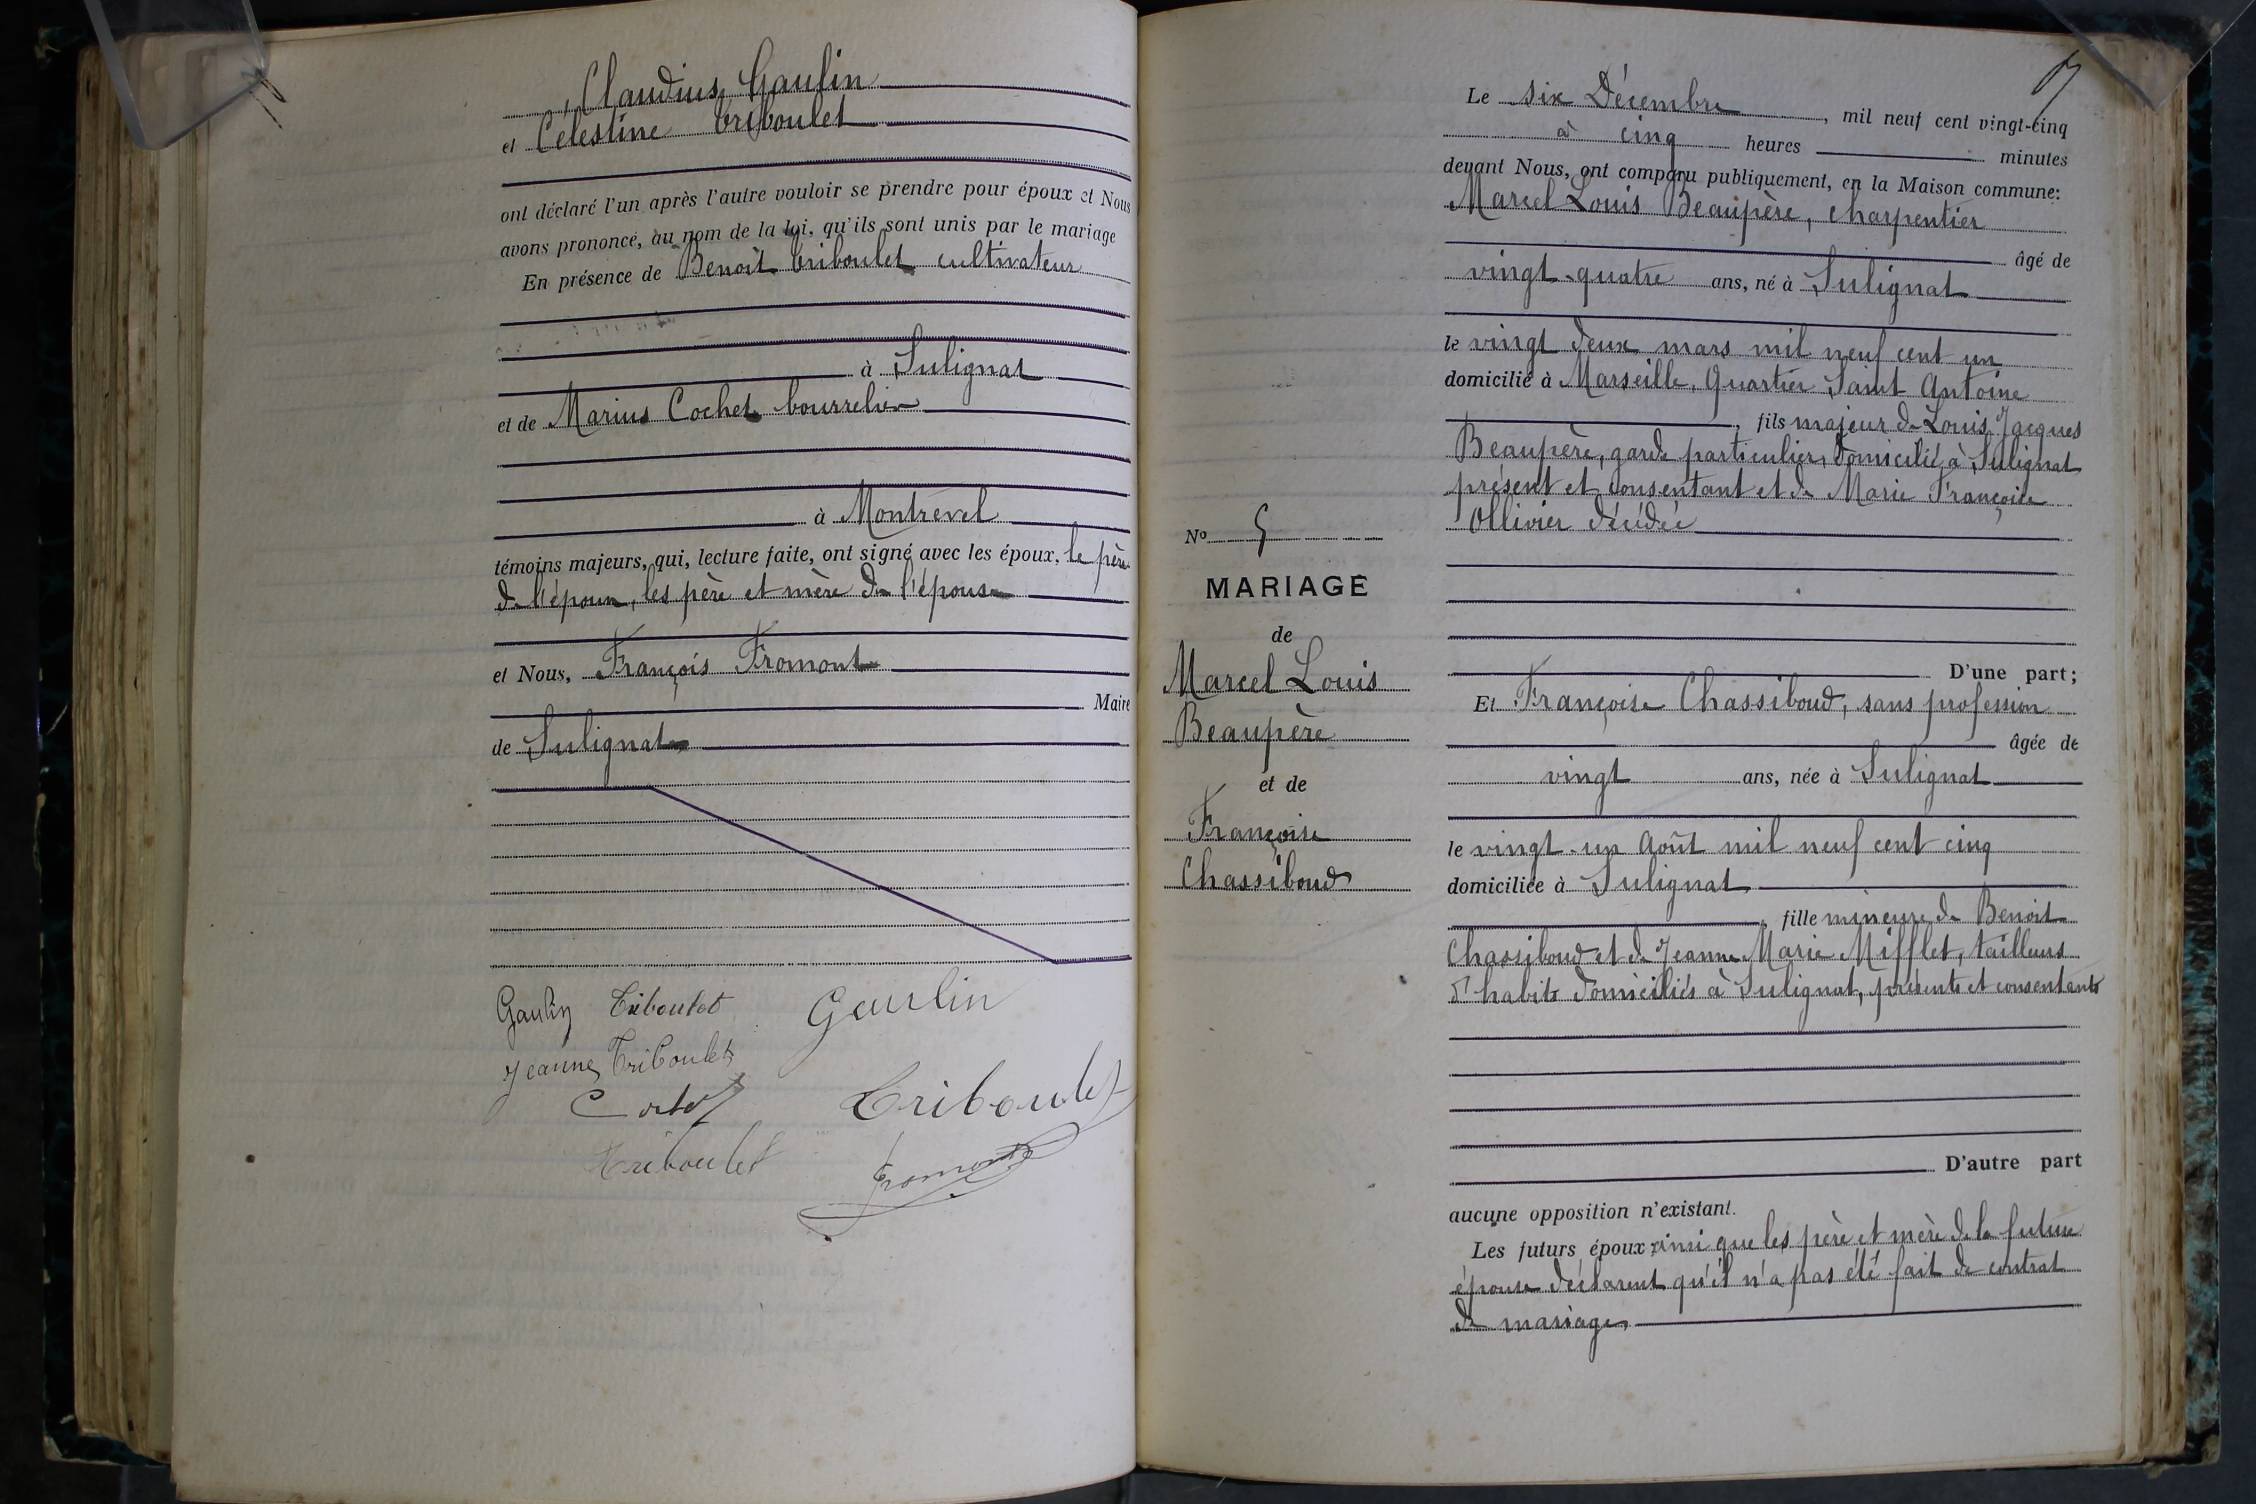 Claudius Gaulin
et Célestine Triboulet
ont déclaré l'un après l'autre vouloir se prendre pour époux et Nous
avons prononcé, au nom de la loi, qu'ils sont unis par le mariage
En présence de Benoît Triboulet cultivateur
à Sulignat
et de Marius Cochet bourrelier
à Montrevel
témoins majeurs, qui, lecture faite, ont signé avec les époux, le père
de l'époux, les père et mère de l'épouse
et Nous, François Fromont
Maire
de Sulignat
Gaulin Triboulet Gaulin
Jeanne Triboulet
Triboulet
Triboulet
Fromont
Le six Décembre, mil neuf cent vingt-cinq
à cinq heures minutes
devant Nous, ont comparu publiquement, en la Maison commune:
Marcel Louis Beaupère, charpentier
âgé de
vingt-quatre ans, né à Sulignat
le vingt deux mars mil neuf cent un
domicilié à Marseille, Quartier Saint Antoine
, fils majeur de Louis Jacques
Beaupère, garde particulier, domicilié à Sulignat
présent et consentant et de Marie Françoise
Ollivier décédée
D'une part;
Et Françoise Chassiboud, sans profession
âgée de
vingt ans, née à Sulignat
le vingt-un Août mil neuf cent cinq
domiciliée à Sulignat
, fille mineure de Benoît
Chassiboud et de Jeanne Marie Mifflet, tailleurs
d'habits domiciliés à Sulignat, présents et consentants
D'autre part
aucune opposition n'existant.
Les futurs époux ainsi que les père et mère de la future
épouse déclarent qu'il n'a pas été fait de contrat
de mariage,
No 5
MARIAGE
de
Marcel Louis
Beaupère
et de
Françoise
Chassiboud